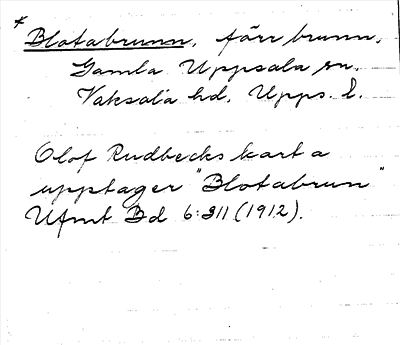 * Blotabrunn, förr brunn,
Gamla Uppsala sn.
Vaksala hd. Upps. l.
Olof Rudbecks karta
upptager "Blotabrun"
Ufmt Bd 6:311 (1912).